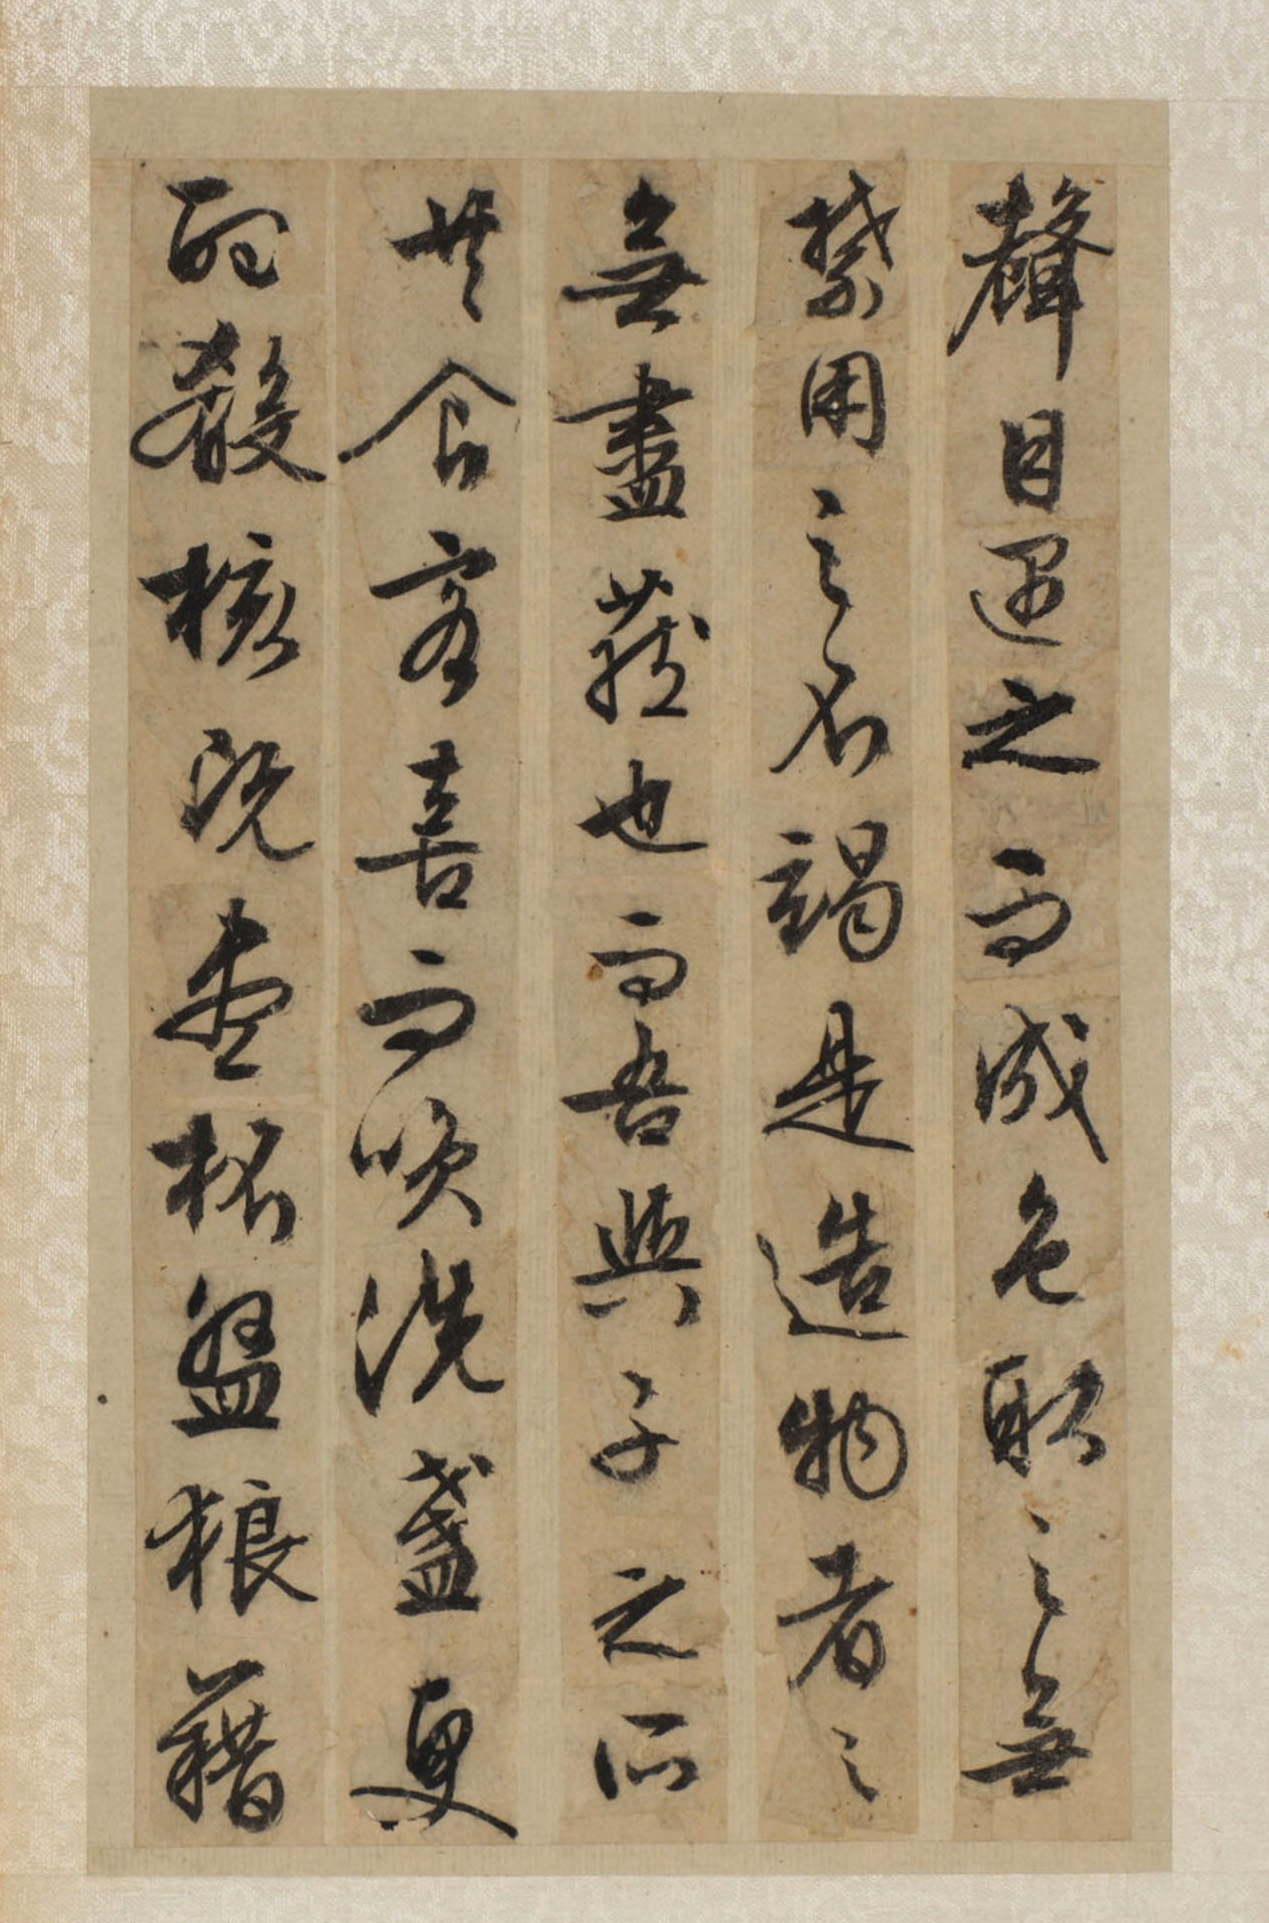 聲目遇之而成色取之無
禁用之不竭是造物者之
無盡藏也而吾與子之所
共食客喜而笑洗盞更
酌殽核既盡杯盤狼藉